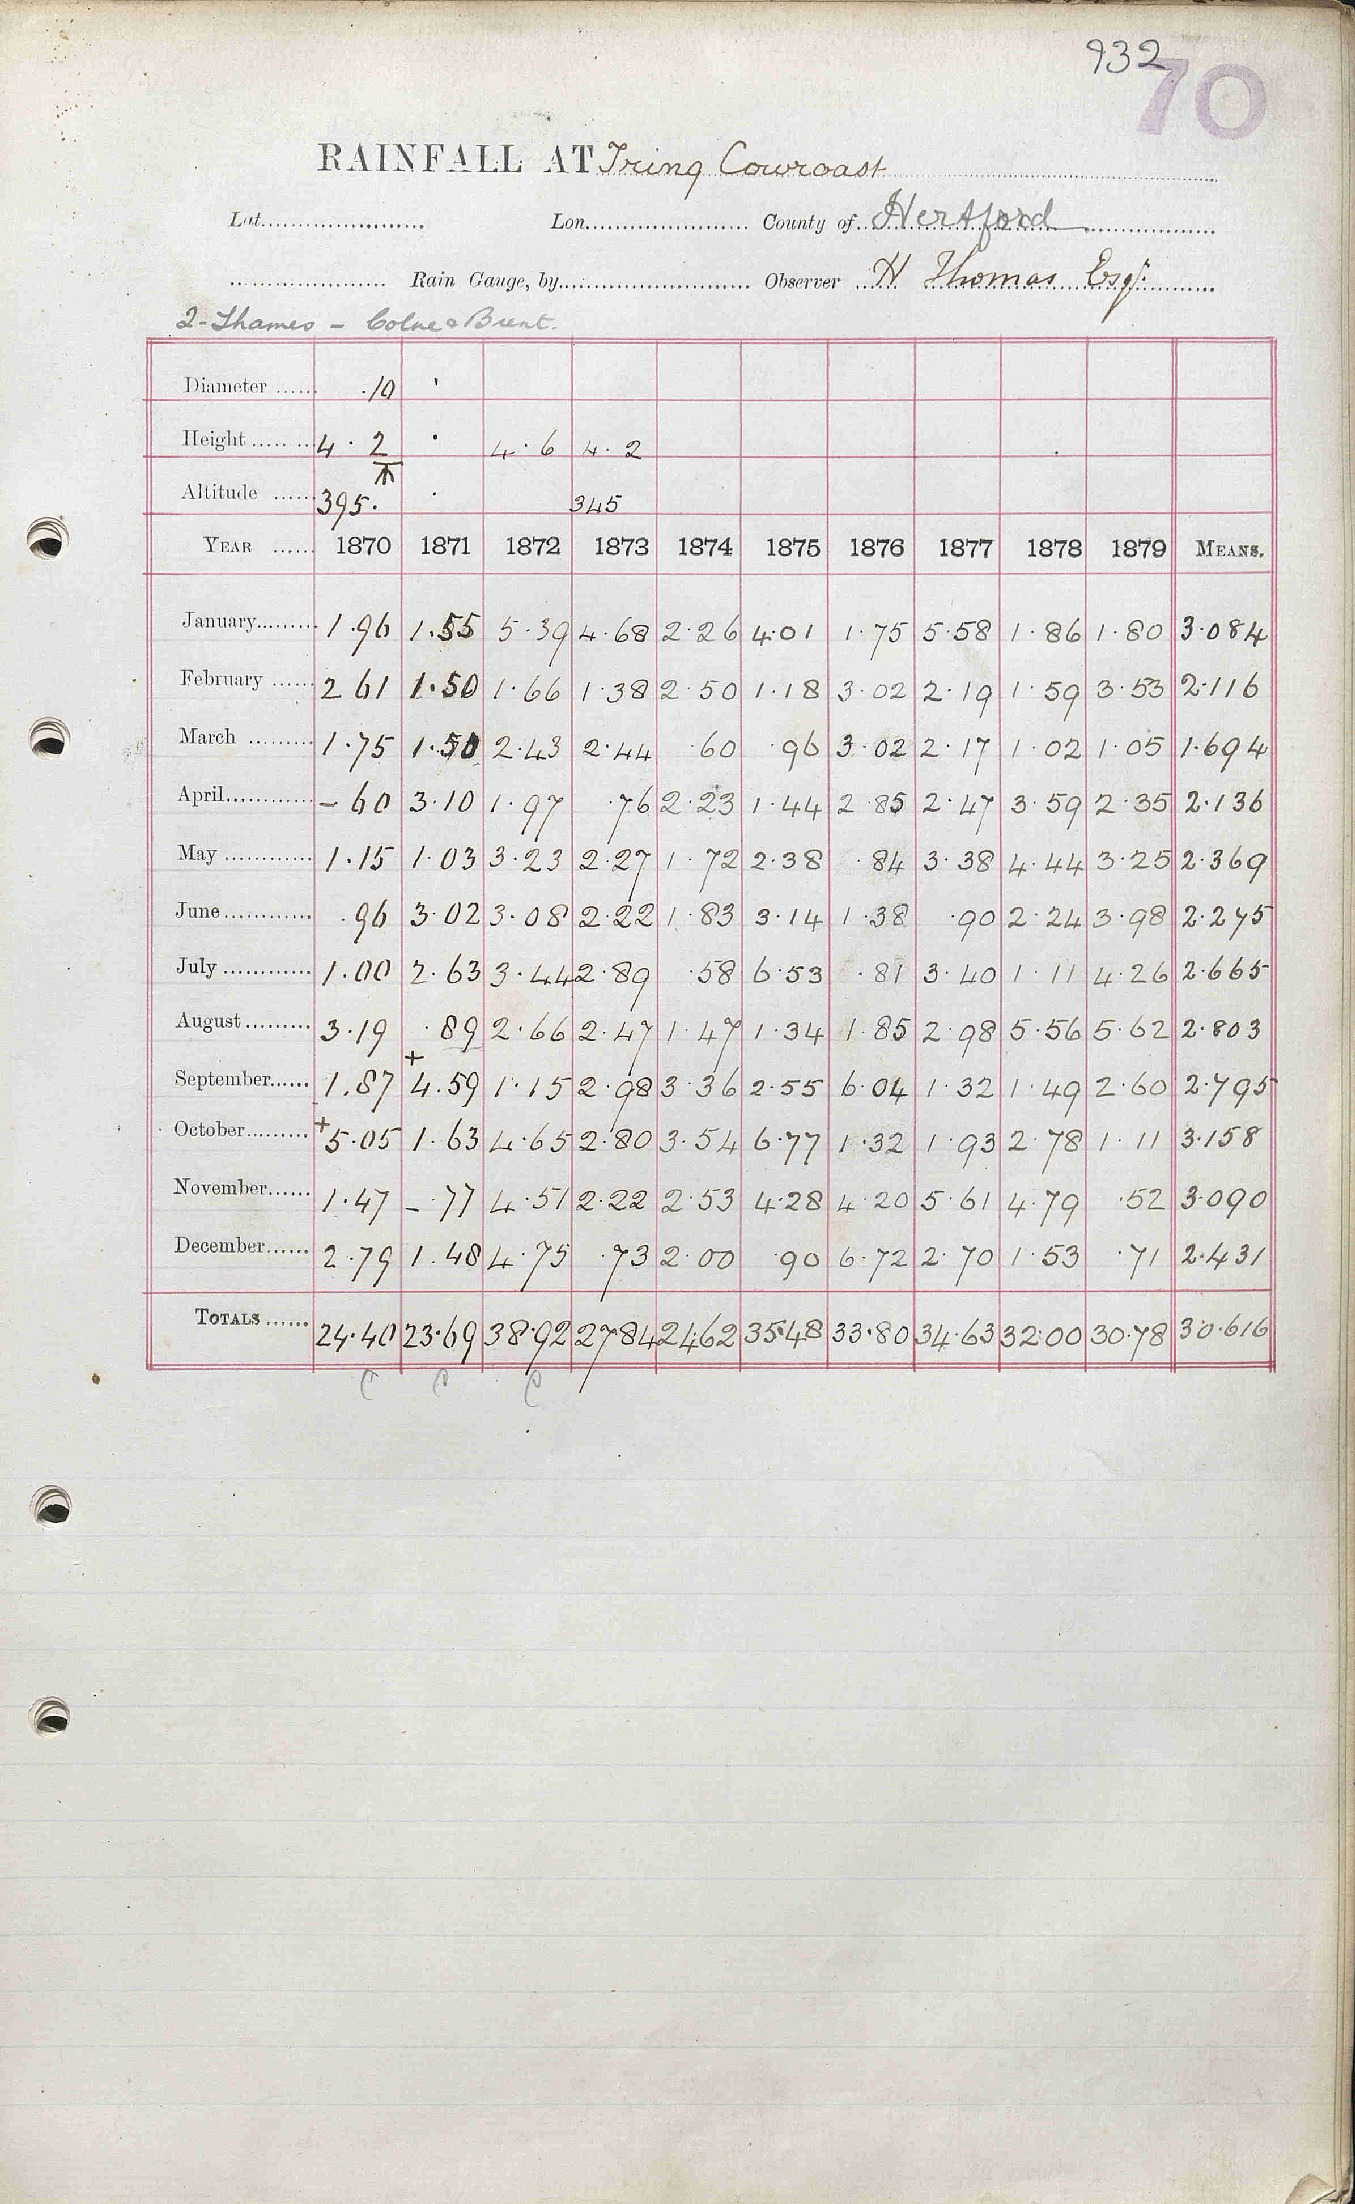 932
70
RAINFALL AT Tring Cowroast
Lat. Lon. County of Hertford
Rain Gauge, by Observer H Thomas Esqr
2-Thames - Colne & Brent.
Diameter 10
Height 4.2 4.6 4.2
Altitude 395. 345
YEAR 1870 1871 1872 1873 1874 1875 1876 1877 1878 1879 MEANS.
January 1.96 1.55 5.39 4.68 2.26 4.01 1.75 5.58 1.86 1.80 3.084
February 2 61 1.50 1.66 1.38 2.50 1.18 3.02 2.19 1.59 3.53 2.116
March 1.75 1.50 2.43 2.44 .60 .96 3.02 2.17 1.02 1.05 1.694
April - 60 3.10 1.97 .76 2.23 1.44 2.85 2.47 3.59 2.35 2.136
May 1.15 1.03 3.23 2.27 1.72 2.38 .84 3.38 4.44 3.25 2.369
June .96 3.02 3.08 2.22 1.83 3.14 1.38 .90 2.24 3.98 2.275
July 1.00 2.63 3.44 2.89 .58 6.53 .81 3.40 1.11 4.26 2.665
August 3.19 .89 2.66 2.47 1.47 1.34 1.85 2.98 5.56 5.62 2.803
September 1.87 +4.59 1.15 2.98 3.36 2.55 6.04 1.32 1.49 2.60 2.795
October +5.05 1.63 4.65 2.80 3.54 6.77 1.32 1.93 2.78 1.11 3.158
November 1.47 - 77 4.51 2.22 2.53 4.28 4.20 5.61 4.79 .52 3.090
December 2.79 1.48 4.75 .73 2.00 .90 6.72 2.70 1.53 .71 2.431
TOTALS 24.40 23.69 38.92 27.84 24.62 35.48 33.80 34.63 32.00 30.78 30.616
C C C